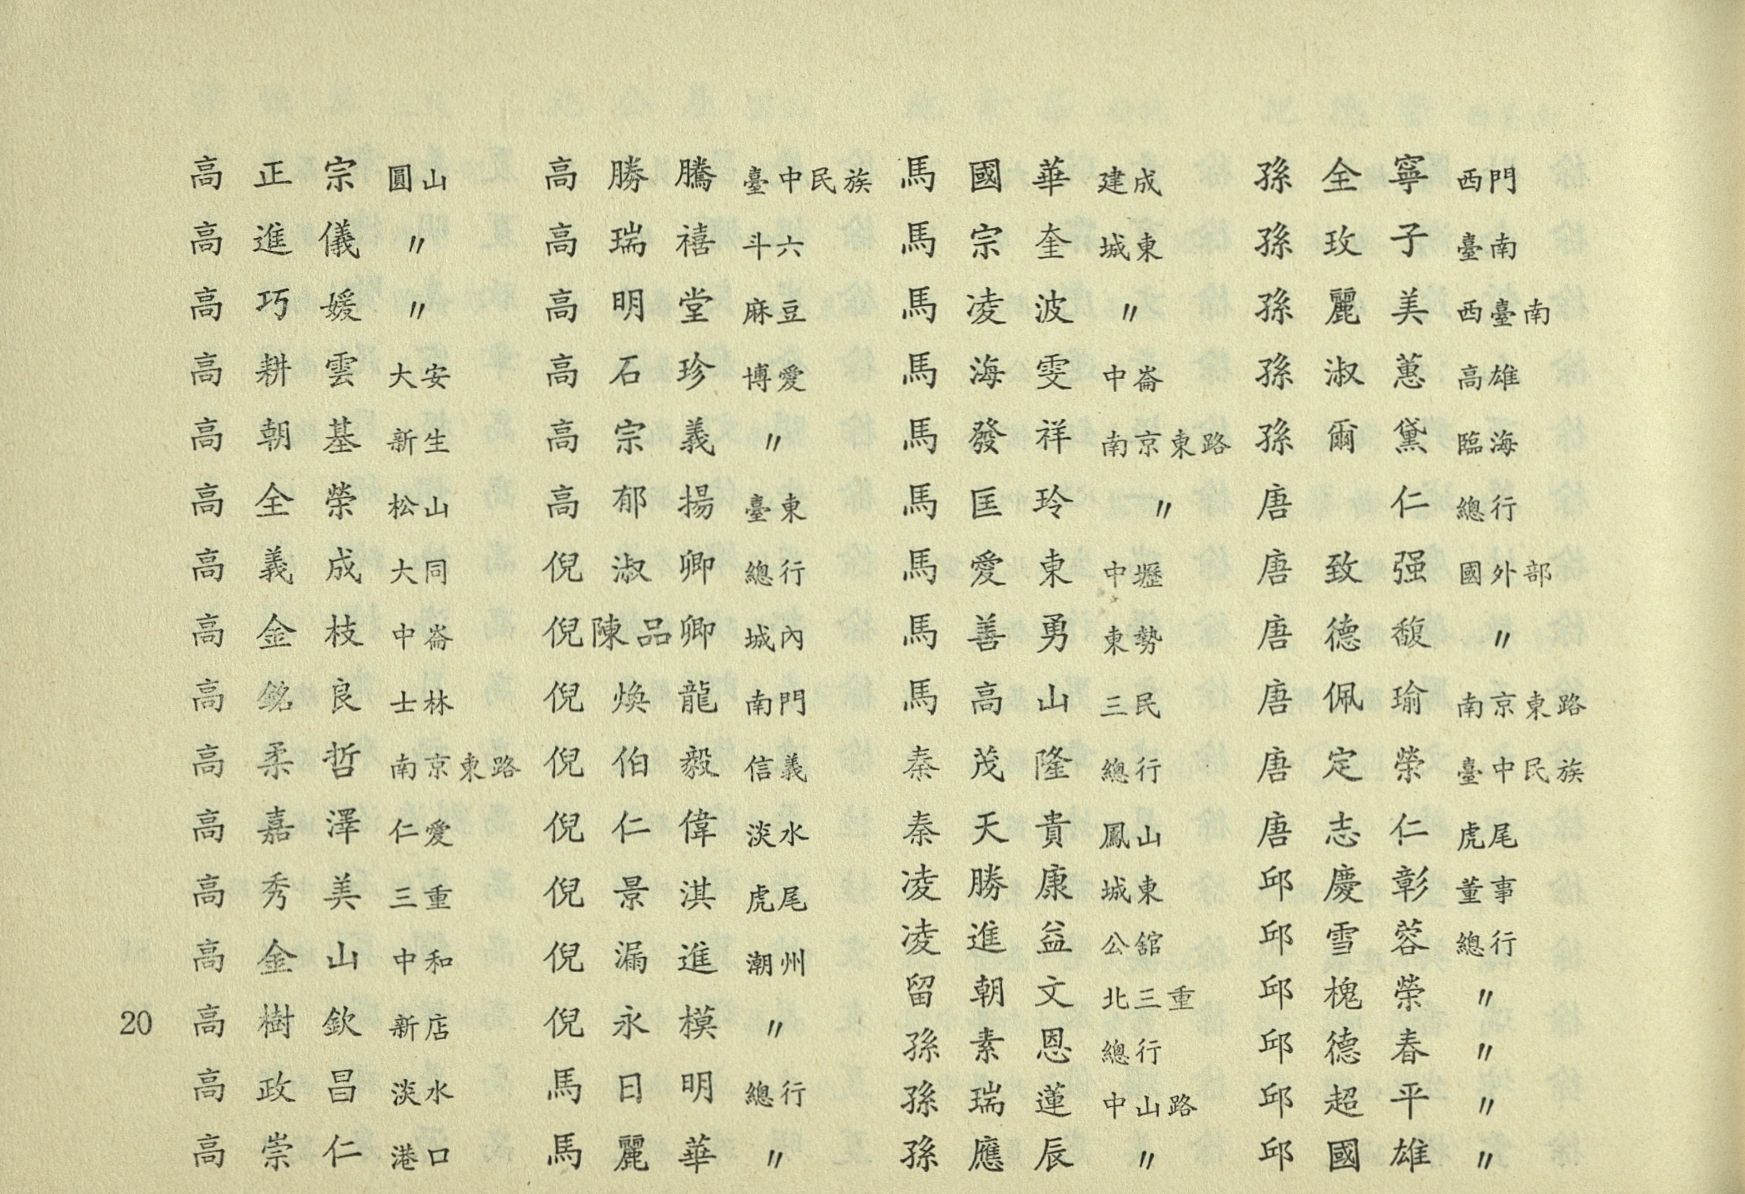 高正宗 圓山
高進儀 〃
高巧媛 〃
高耕雲 大安
高朝基 新生
高全榮 松山
高義成 大同
高金枝 中崙
高銘良 士林
高柔哲 南京東路
高嘉澤 仁愛
高秀美 三重
高金山 中和
高樹欽 新店
高政昌 淡水
高崇仁 港口
高勝騰 臺中民族
高瑞禧 斗六
高明堂 麻豆
高石珍 博愛
高宗義 〃
高郁揚 臺東
倪淑卿 總行
倪陳品卿 城內
倪煥龍 南門
倪伯毅 信義
倪仁偉 淡水
倪景淇 虎尾
倪漏進 潮州
倪永模 〃
馬日明 總行
馬麗華 〃
馬國華 建成
馬宗奎 城東
馬凌波 〃
馬海雯 中崙
馬發祥 南京東路
馬匡玲 〃
馬愛東 中壢
馬善勇 東勢
馬高山 三民
秦茂隆 總行
秦天貴 鳳山
凌勝康 城東
凌進益 公館
留朝文 北三重
孫素恩 總行
孫瑞蓮 中山路
孫應辰 〃
孫全寧 西門
孫玫子 臺南
孫麗美 西臺南
孫淑蕙 高雄
孫爾黛 臨海
唐仁 總行
唐致强 國外部
唐德馥 〃
唐佩瑜 南京東路
唐定榮 臺中民族
唐志仁 虎尾
邱慶彰 董事
邱雪蓉 總行
邱槐榮 〃
邱德春 〃
邱超平 〃
邱國雄 〃
20